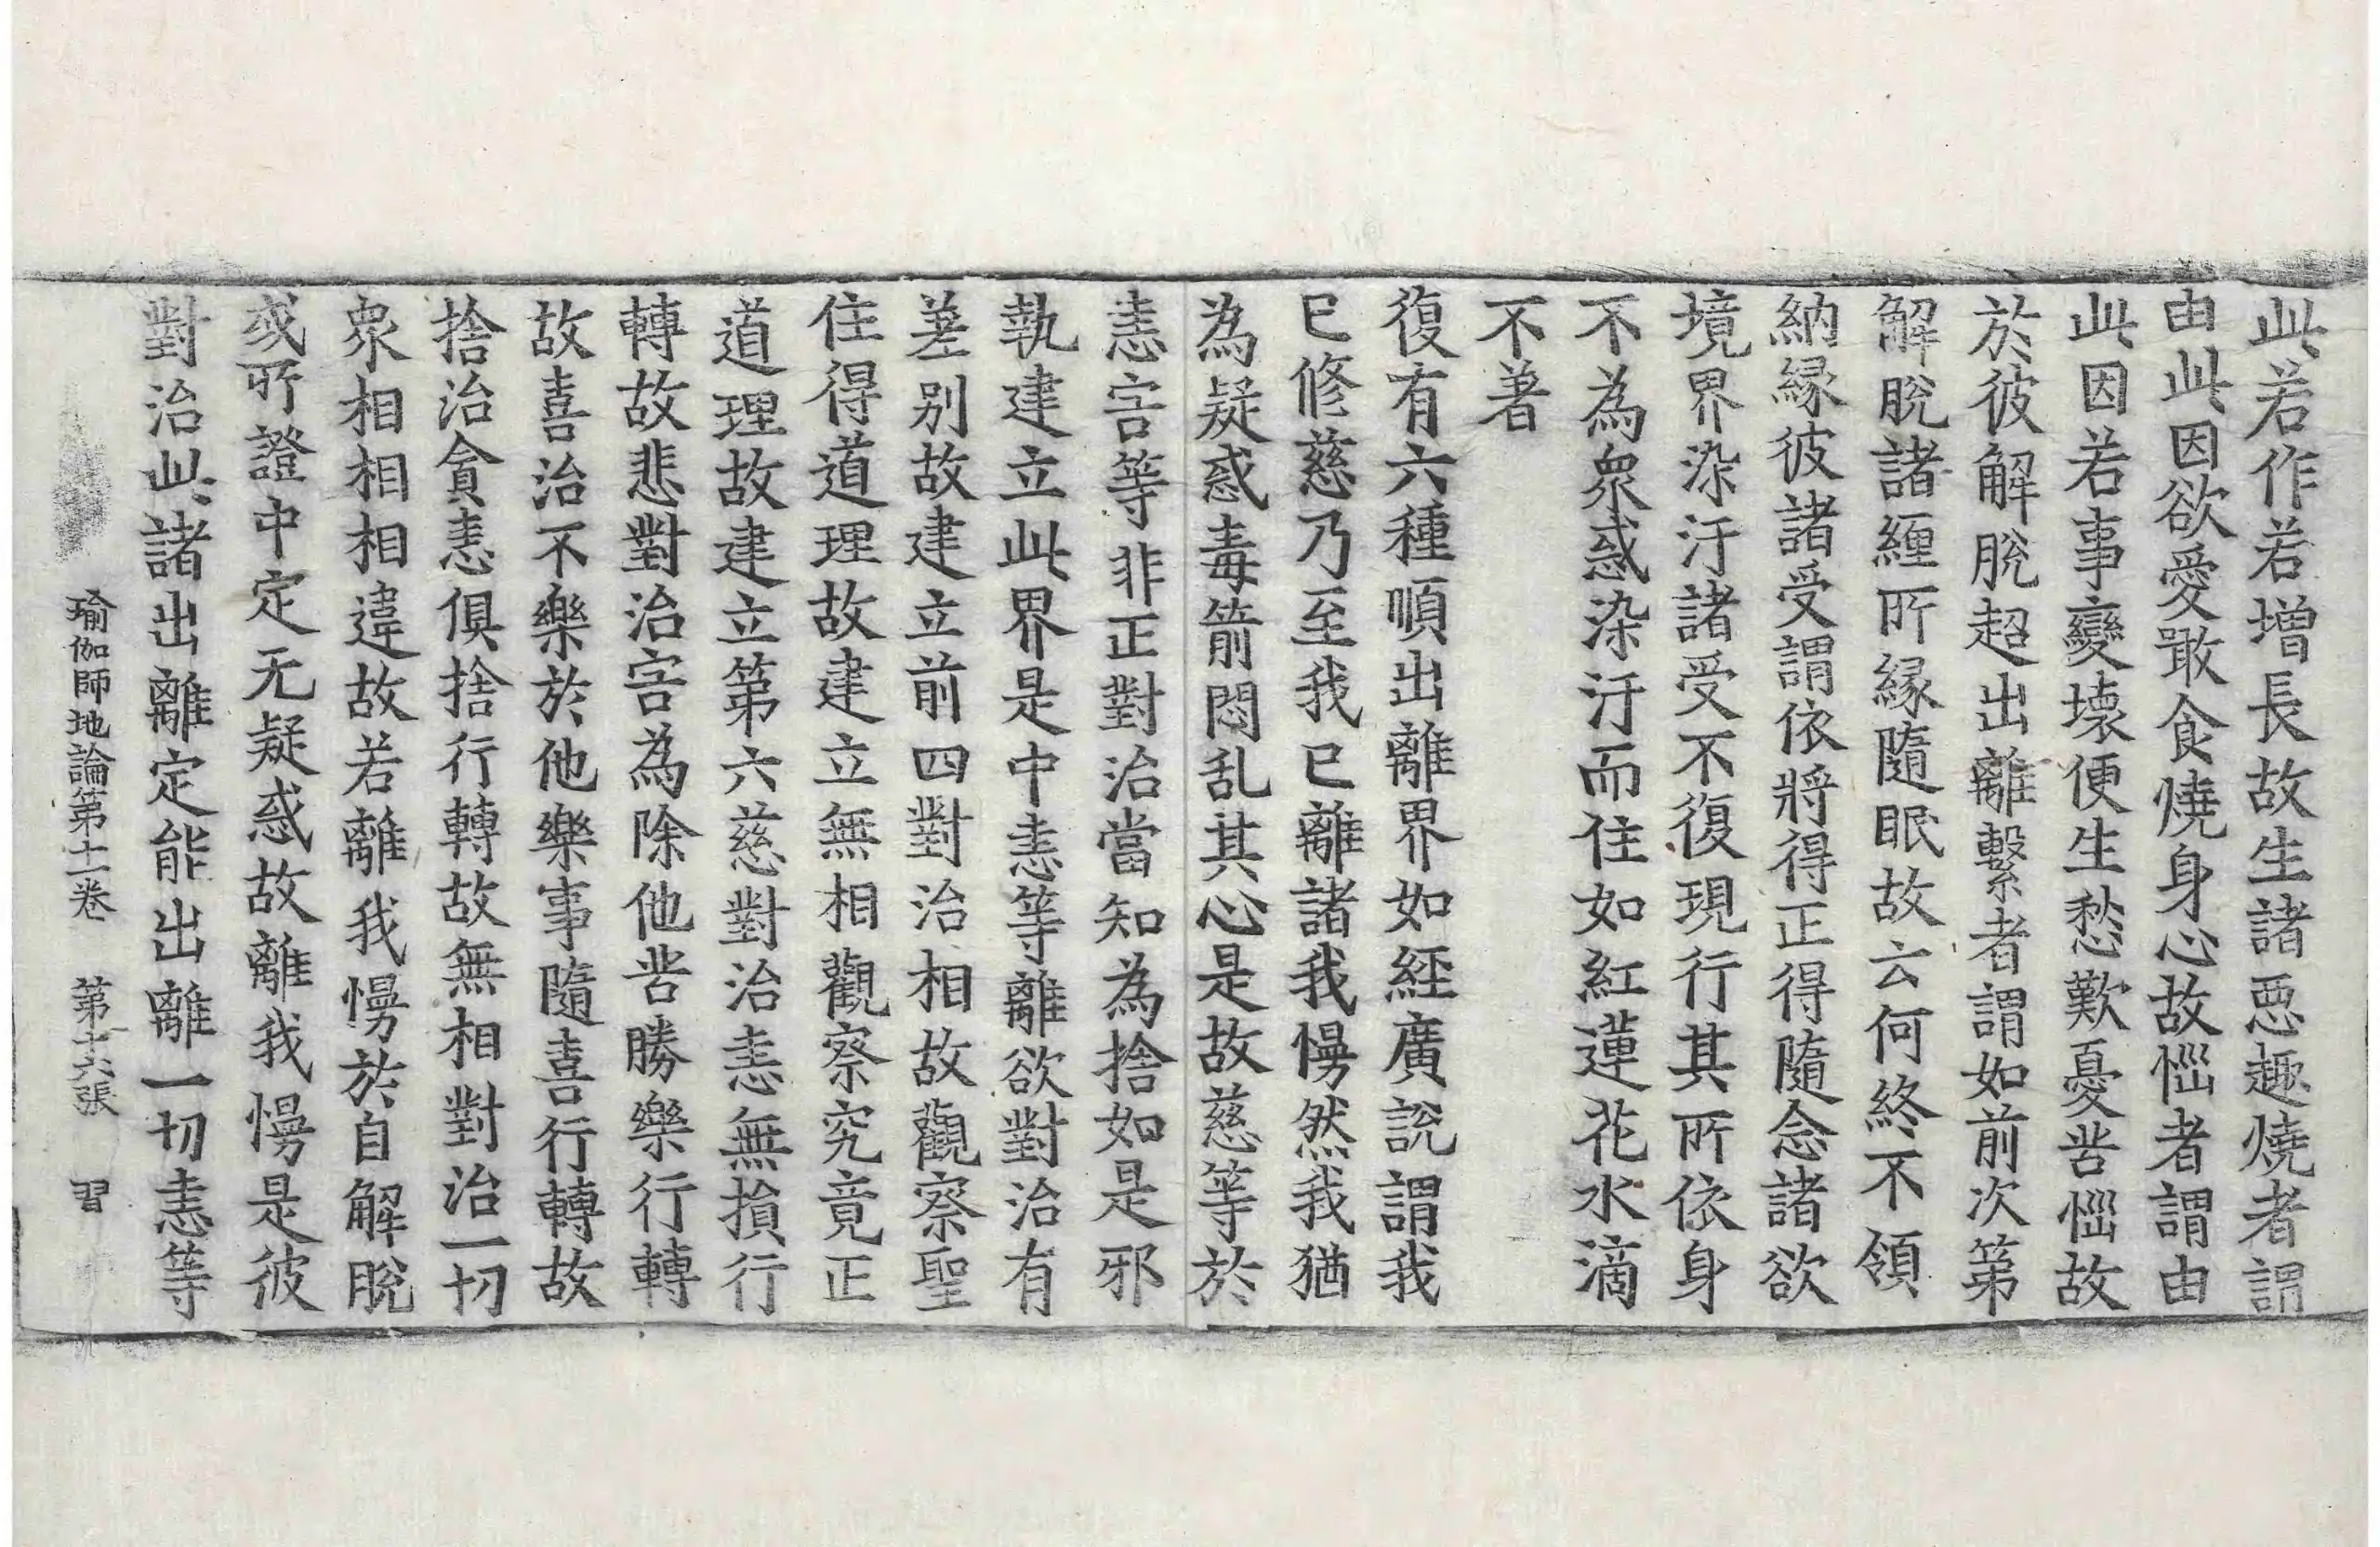 此若作若增長故生諸惡趣燒者謂
由此因欲愛噉食燒身心故惱者謂由
此因若事變壞便生愁歎憂苦惱故
於彼解脫超出離繫者謂如前次第
解脫諸纏所緣隨眠故云何終不領
納緣彼諸受謂依將得正得隨念諸欲
境界染汙諸受不復現行其所依身
不為衆惑染汙而住如紅蓮花水滴
不著
復有六種順出離界如經廣說謂我
已修慈乃至我已離諸我慢然我猶
為疑惑毒箭悶乱其心是故慈等於
恚害等非正對治當知為捨如是邪
執建立此界是中恚等離欲對治有
差別故建立前四對治相故觀察聖
住得道理故建立無相觀察究竟正
道理故建立第六慈對治恚無損行
轉故悲對治害為除他苦勝樂行轉
故喜治不樂於他樂事隨喜行轉故
捨治貪恚俱捨行轉故無相對治一切
衆相相相違故若離我慢於自解脫
或所證中定无疑惑故離我慢是彼
對治此諸出離定能出離一切恚等
瑜伽師地論第十一卷 第十六張 習